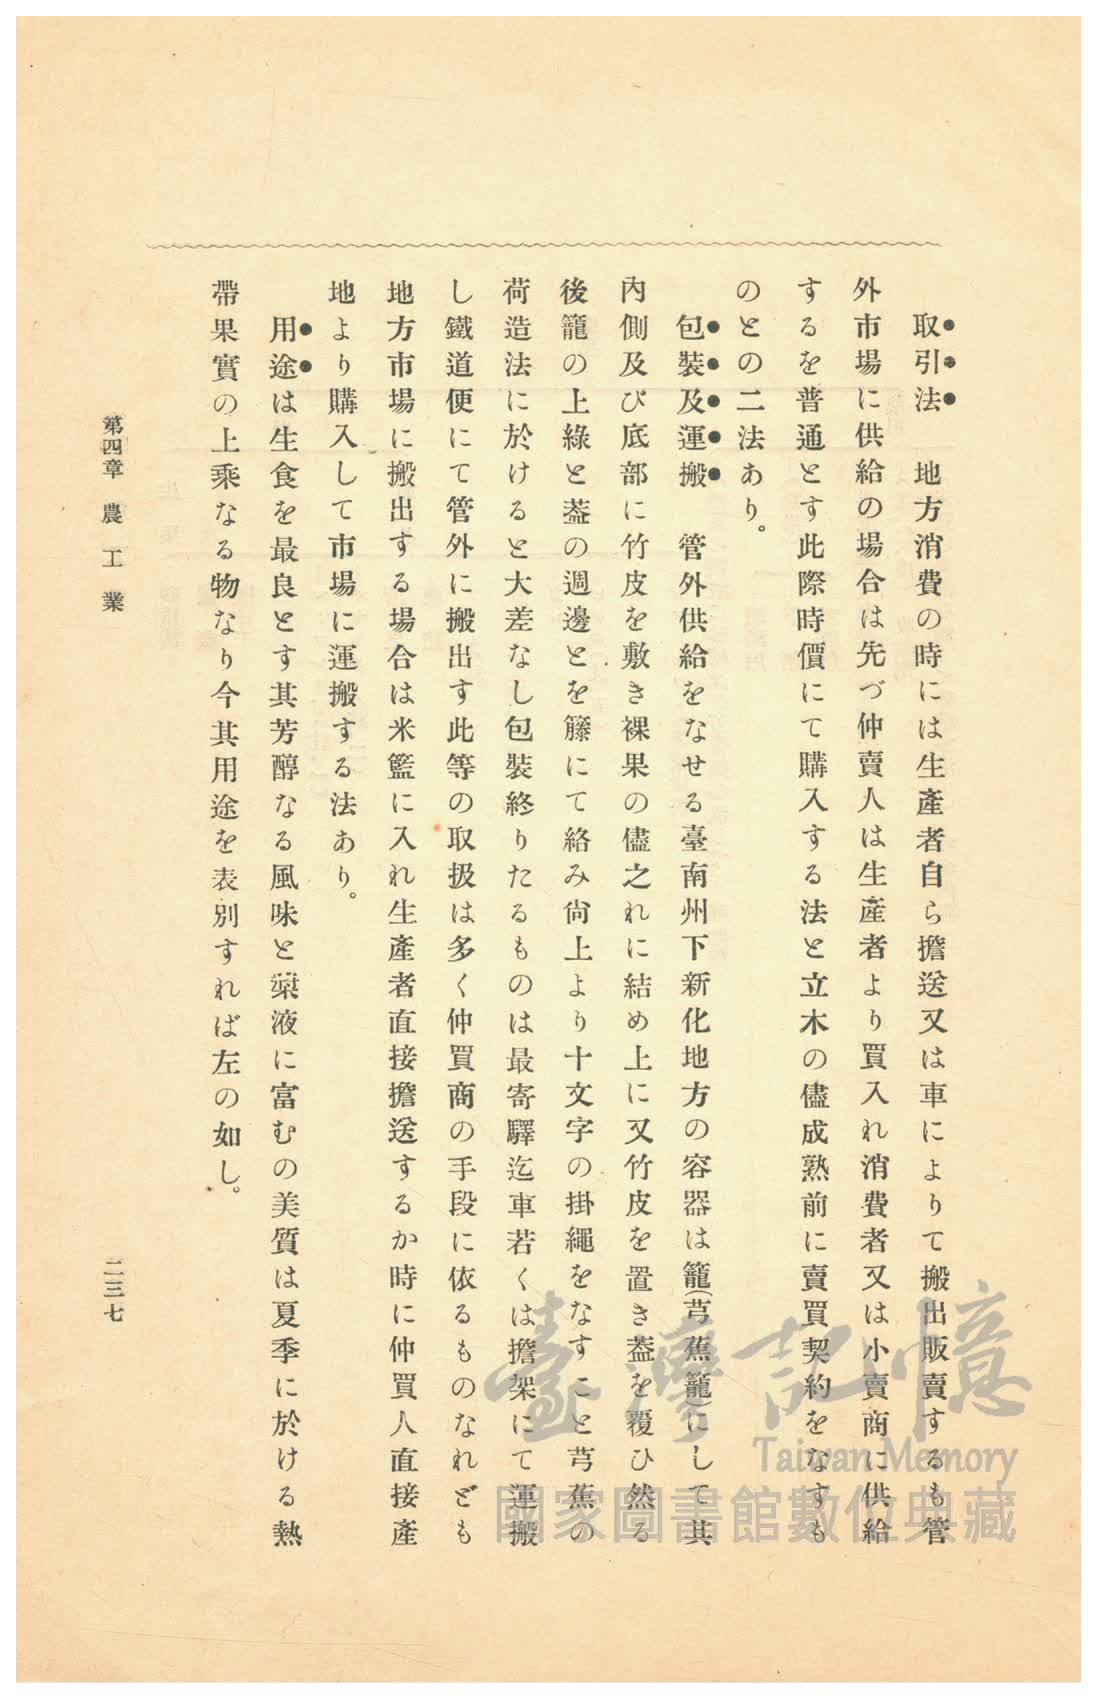 取引法　地方消費の時には生產者自ら擔送又は車によりて搬出販賣するも管
外市場に供給の場合は先づ仲賣人は生產者より買入れ消費者又は小賣商に供給
するを普通とす此際時價にて購入する法と立木の儘成熟前に賣買契約をなすも
のとの二法あり。
包裝及運搬　管外供給をなせる臺南州下新化地方の容器は籠(芎蕉籠)にして其
內側及び底部に竹皮を敷き裸果の儘之れに結め上に又竹皮を置き葢を覆ひ然る
後籠の上綠と葢の週邊とを籐にて絡み尙上より十文字の掛繩をなすこと芎蕉の
荷造法に於けると大差なし包裝終りたるものは最寄驛迄車若くは擔架にて運搬
し鐵道便にて管外に搬出す此等の取扱は多く仲買商の手段に依るものなれども
地方市場に搬出する場合は米籃に入れ生產者直接擔送するか時に仲買人直接產
地より購入して市場に運搬する法あり。
用途は生食を最良とす其芳醇なる風味と漿液に富むの美質は夏季に於ける熱
帶果實の上乘なる物なり今其用途を表別すれば左の如し。
第四章　農工業
二三七
臺灣記憶
Taiwan Memory
國家圖書館數位典藏